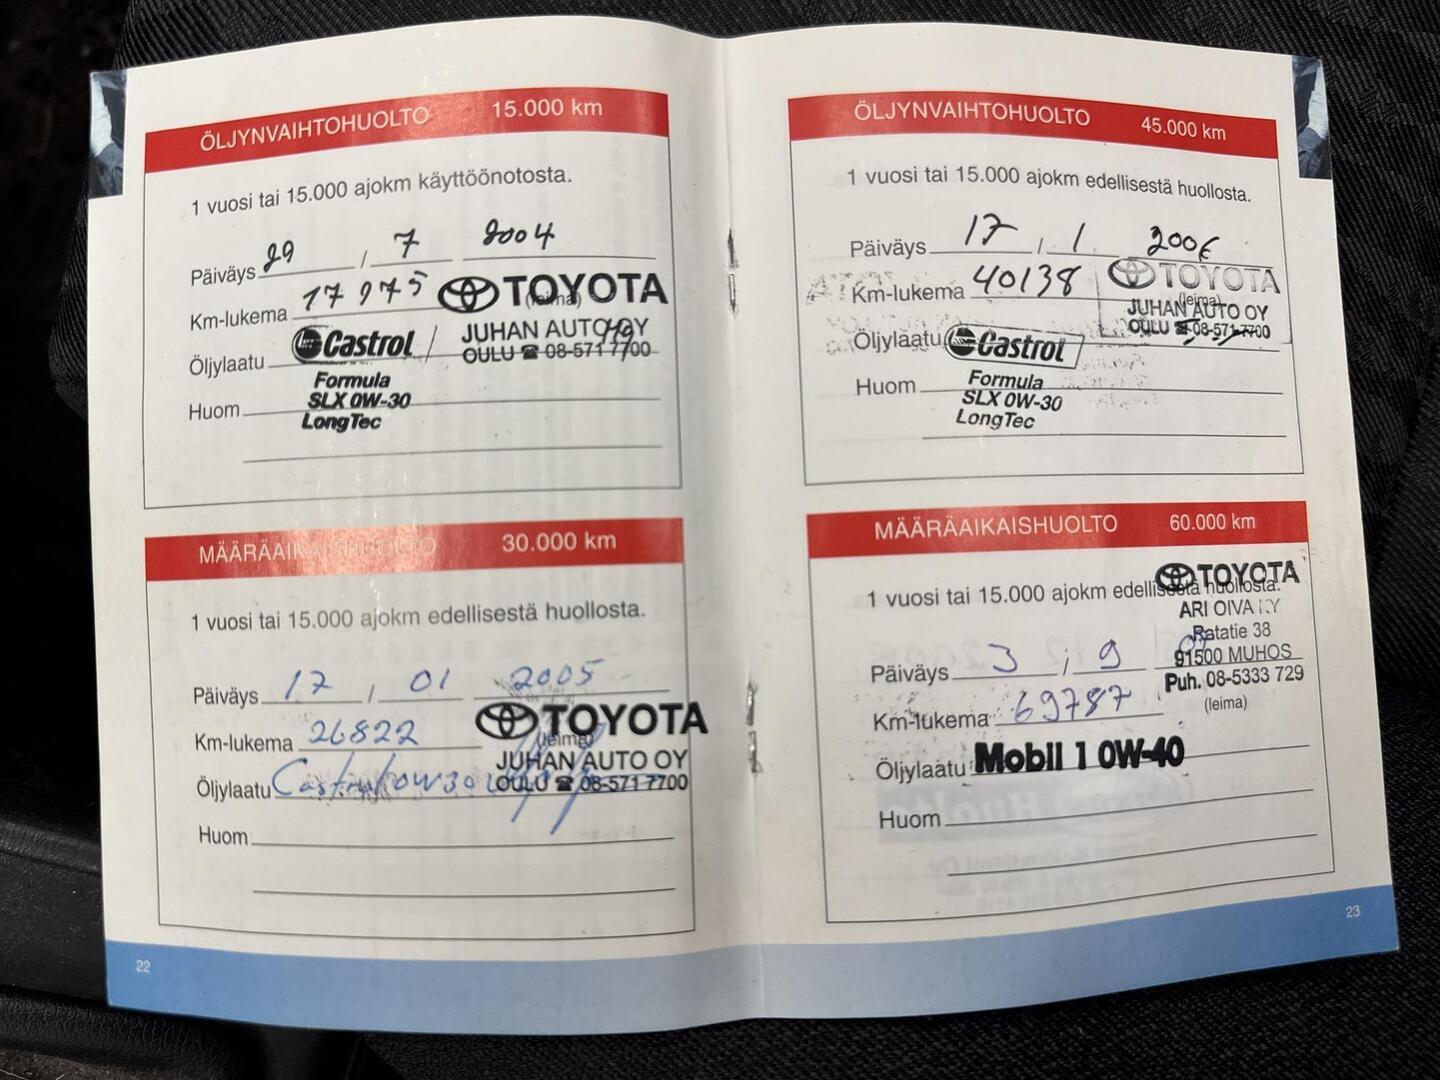 ÖLJYNVAIHTOHUOLTO 15.000 km
1 vuosi tai 15.000 ajokm käyttöönotosta.
Päiväys 29 / 7 2004
Km-lukema 17975
TOYOTA
(leima)
JUHAN AUTO OY
OULU ☎ 08-571 7700
Öljylaatu Castrol
Formula
Huom SLX 0W-30
LongTec
MÄÄRÄAIKAISHUOLTO 30.000 km
1 vuosi tai 15.000 ajokm edellisestä huollosta.
Päiväys 17 / 01 2005
Km-lukema 26822
TOYOTA
(leima)
JUHAN AUTO OY
OULU ☎ 08-571 7700
Öljylaatu Castrol 0W30
Huom
22
ÖLJYNVAIHTOHUOLTO 45.000 km
1 vuosi tai 15.000 ajokm edellisestä huollosta.
Päiväys 17 / 1 2006
Km-lukema 40138
TOYOTA
(leima)
JUHAN AUTO OY
OULU ☎ 08-571 7700
Öljylaatu Castrol
Formula
Huom SLX 0W-30
LongTec
MÄÄRÄAIKAISHUOLTO 60.000 km
1 vuosi tai 15.000 ajokm edellisestä huollosta.
TOYOTA
ARI OIVA KY
Ratatie 38
91500 MUHOS
Puh. 08-5333 729
(leima)
Päiväys 3 / 9 07
Km-lukema 69787
Öljylaatu Mobil 1 0W-40
Huom
23